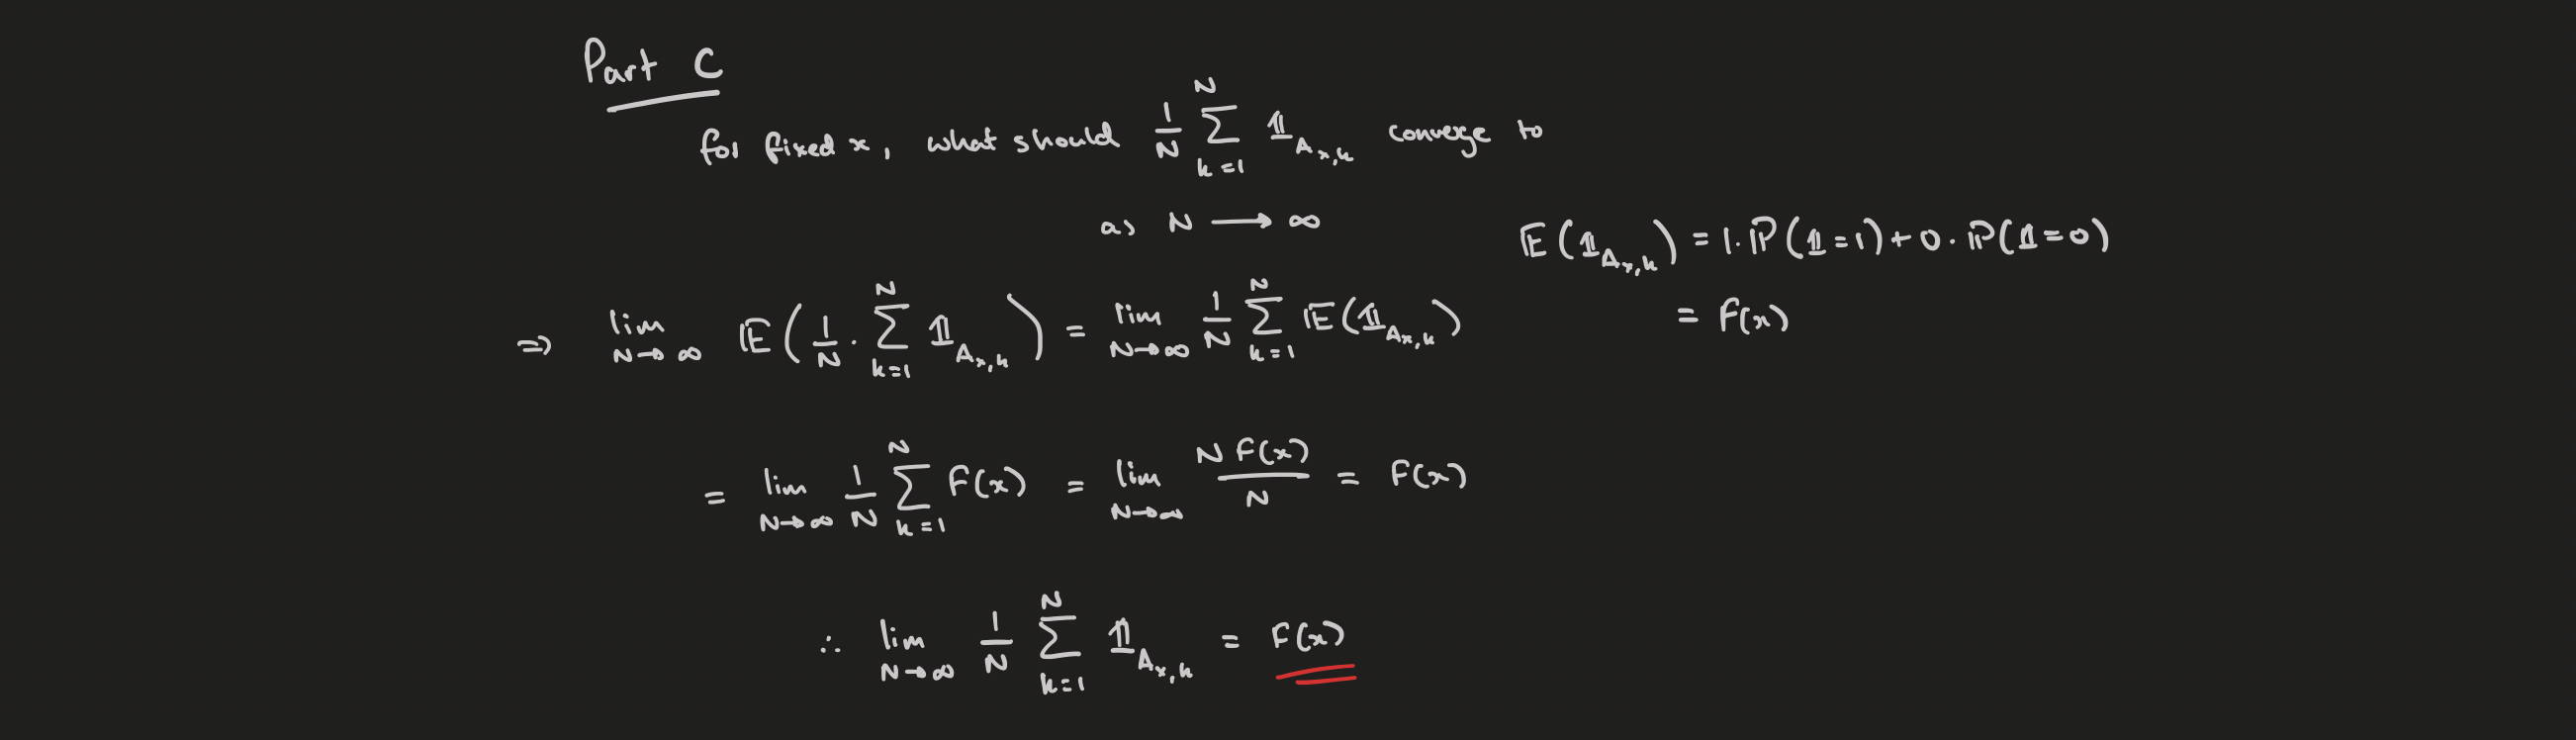 Part C
for fixed x, what should 1/N ∑_{k=1}^{N} 𝟙_{A_{x,k}} converge to
as N ⟶ ∞
𝔼(𝟙_{A_{x,k}}) = 1·ℙ(𝟙=1) + 0·ℙ(𝟙=0)
= F(x)
⇒ lim_{N→∞} 𝔼(1/N · ∑_{k=1}^{N} 𝟙_{A_{x,k}}) = lim_{N→∞} 1/N ∑_{k=1}^{N} 𝔼(𝟙_{A_{x,k}})
= lim_{N→∞} 1/N ∑_{k=1}^{N} F(x) = lim_{N→∞} N F(x)/N = F(x)
∴ lim_{N→∞} 1/N ∑_{k=1}^{N} 𝟙_{A_{x,k}} = F(x)